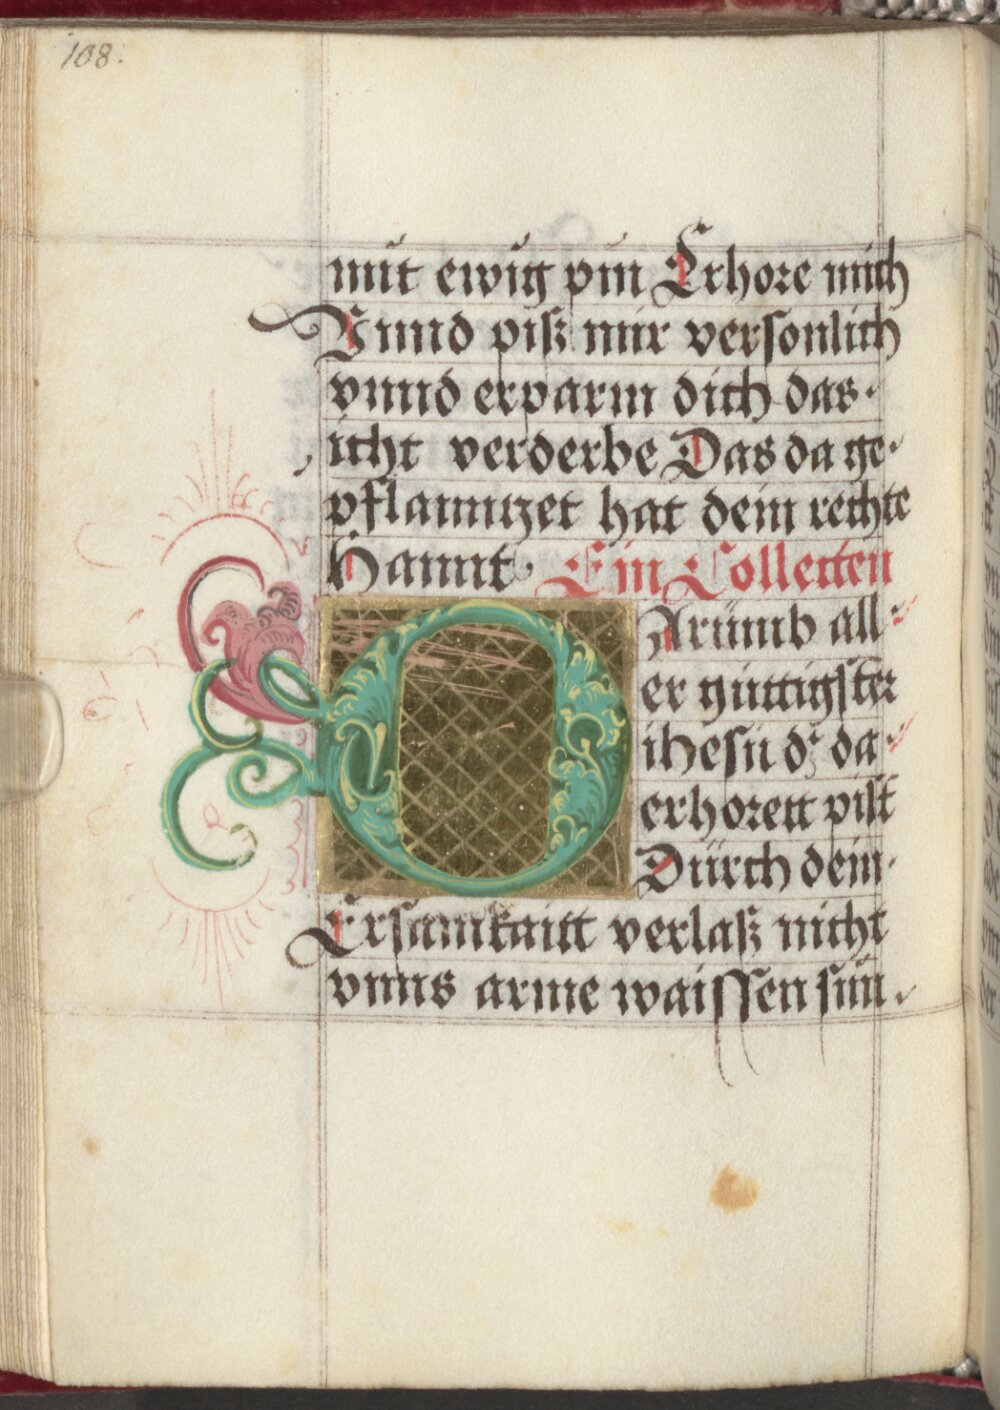 108.
mit ewig pin Erhore mich
Vnnd piß mir versonlich
vnnd erparm dich das
icht verderbe Das da ge-
pflanntzet hat dein rechte
Hannt Ein Collecten
DArümb all-
er güttigster
ihesu d da-
erhorett pist
Dürch dein
Ersamkaitt verlaß nicht
vnns arme waissen sün-